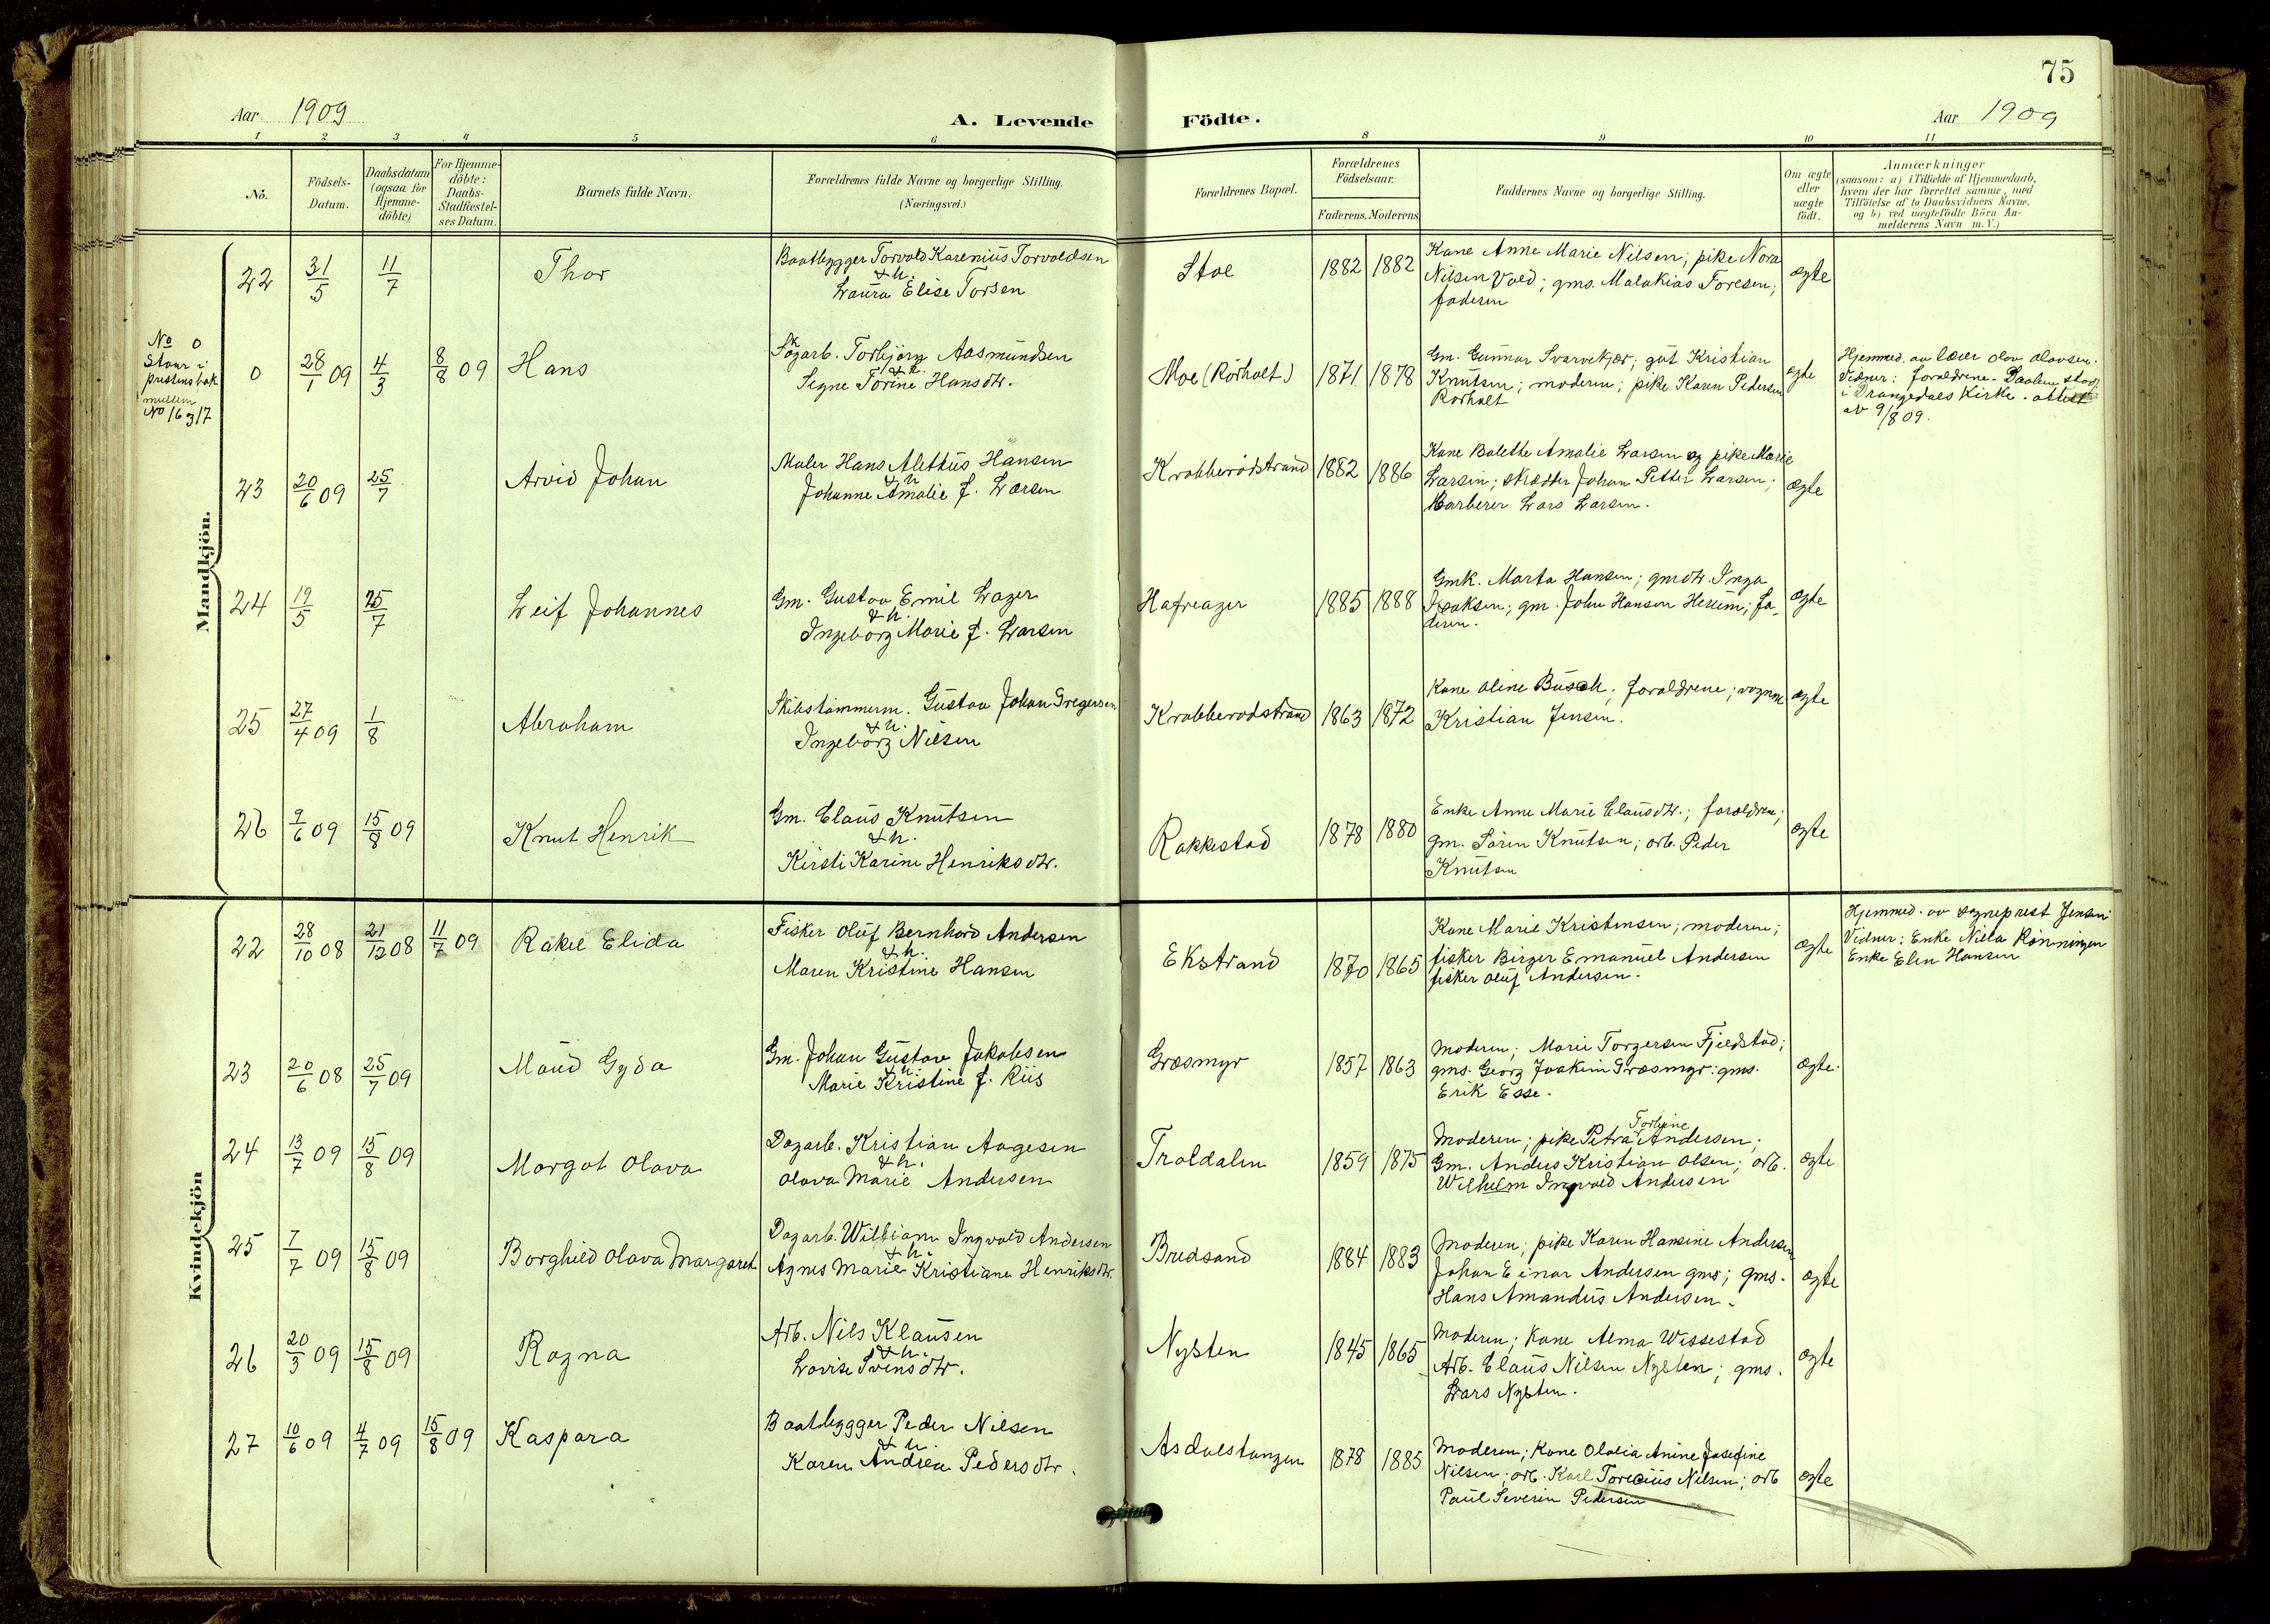 75
Aar 1909
A. Levende
Födte.
Aar 1909
1 2 3 4 5 6 8 9 10 11
No.
Födsels-
Datum.
Daabsdatum
(ogsaa for
Hjemme-
döbte)
For Hjemme-
döbte:
Daabs-
Stadfæstel-
ses Datum.
Barnets fulde Navn.
Forældrenes fulde Navne og borgerlige Stilling.
(Næringsvei.)
Forældrenes Bopæl.
Forældrenes
Födselsaar.
Faderens. Moderens
Faddernes Navne og borgerlige Stilling.
Om ægte
eller
uægte
födt.
Anmærkninger
(saasom: a) i Tilfælde af Hjemmedaab,
hvem der har forrettet samme, med
Tilföielse af to Daabsvidners Navne.
og b) ved uægtefödte Börn An-
melderens Navn m.V.)
Mandkjön.
22 31/5 11/7 Thor
Baatbygger Torvald Karenius Torvaldsen
& h.
Laura Elise Torsen
Stoe 1882 1882
Kone Anne Marie Nilsen; pike Nora
Nilsen Vald; gms. Malakias Toresen;
faderen
ægte
No 0
Staar i
prestens bok
mellem
No 16 og 17
0 28/1 09 4/3 8/8 09 Hans
Sagarb. Torbjørg Aasmundsen
& h.
Signe Torine Hansdtr.
Moe (Rörholt) 1871 1878
Gm. Gunnar Svarvekjær; gut Kristian
Knutsen; moderen; pike Karen Pedersen
Rörholt
ægte
Hjemmed. av lærer Olav Olavsen.
Vidner: forældrene. Daaben stadf.
i Drangedals Kirke. attest
av 9/8 09.
23 20/6 09 25/7 Arvid Johan
Maler Hans Alettius Hansen
& h
Johanne Amalie f. Larsen
Krabberødstrand 1882 1886
Kone Bolette Amalie Larsen og pike Marie
Larsen; skrædder Johan Petter Larsen;
Barberer Lars Larsen.
ægte
24 19/5 25/7 Leif Johannes
Gm. Gustav Emil Lager
& h.
Ingeborg Marie f. Larsen
Hafreager 1885 1888
Gmk. Marta Hansen; gmdtr. Inga
Isaksen; gm. John Hansen Herum; fa-
deren.
ægte
25 27/4 09 1/8 Abraham
Skibstømmerm. Gustav Johan Gregersen
& h.
Ingeborg Nilsen
Krabberødstrand 1863 1872
Kone Oline Busch; forældrene; vognm.
Kristian Jensen.
ægte
26 9/6 09 15/8 09 Knut Henrik
Gm. Claus Knutsen
& h.
Kirsti Karine Henriksdtr.
Rakkestad 1878 1880
Enke Anne Marie Clausdtr.; forældrene;
gm. Sören Knutsen; arb. Peder
Knutsen
ægte
Kvindekjön
22 28/10 08 21/12 08 11/7 09 Rakel Elida
Fisker Oluf Bernhard Andersen
& h.
Maren Kristine Hansen
Ekstrand 1870 1865
Kone Marie Kristensen; moderen;
fisker Birger Emanuel Andersen
fisker Oluf Andersen.
ægte
Hjemmed. av sogneprest Jensen
Vidner: Enke Niela Rönningen
Enke Elen Hansen
23 20/6 08 25/7 09 Maud Gyda
Gm. Johan Gustav Jakobsen
& h.
Marie Kristine f. Riis
Græsmyr 1857 1863
Moderen; Marie Torgersen Fjeldstad;
gms. Georg Joakim Græsmyr; gms.
Erik Esse.
ægte.
24 13/7 09 15/8 09 Margot Olava
Dagarb. Kristian Aagesen
& h.
Olava Marie Andersen
Traldalen 1859 1875
Moderen; pike Petra Torbine Andersen;
Gm. Anders Kristian Olsen; arb.
Wilhelm Ingvald Andersen
ægte
25 7/7 09 15/8 09 Borghild Olava Margaret
Dagarb. William Ingvald Andersen
& h.
Agnes Marie Kristiane Henriksdtr.
Bredsand 1884 1883
Moderen; pike Karen Hansine Andersen
Johan Einar Andersen gms; gms.
Hans Amandus Andersen.
ægte
26 20/3 09 15/8 09 Ragna
Arb. Nils Klausen
& h.
Lovise Svensdtr.
Nysten 1845 1865
Moderen; Kone Alma Wissestad
Arb. Claus Nilsen Nysten; gms.
Lars Nysten.
ægte
27 10/6 09 4/7 09 15/8 09 Kaspara
Baatbygger Peder Nilsen
& h.
Karen Andrea Pedersdtr.
Asdalstangen 1878 1885
Moderen; Kone Olalia Anine Josefine
Nilsen; arb. Karl Torecius Nilsen; arb
Paul Severin Pedersen
ægte